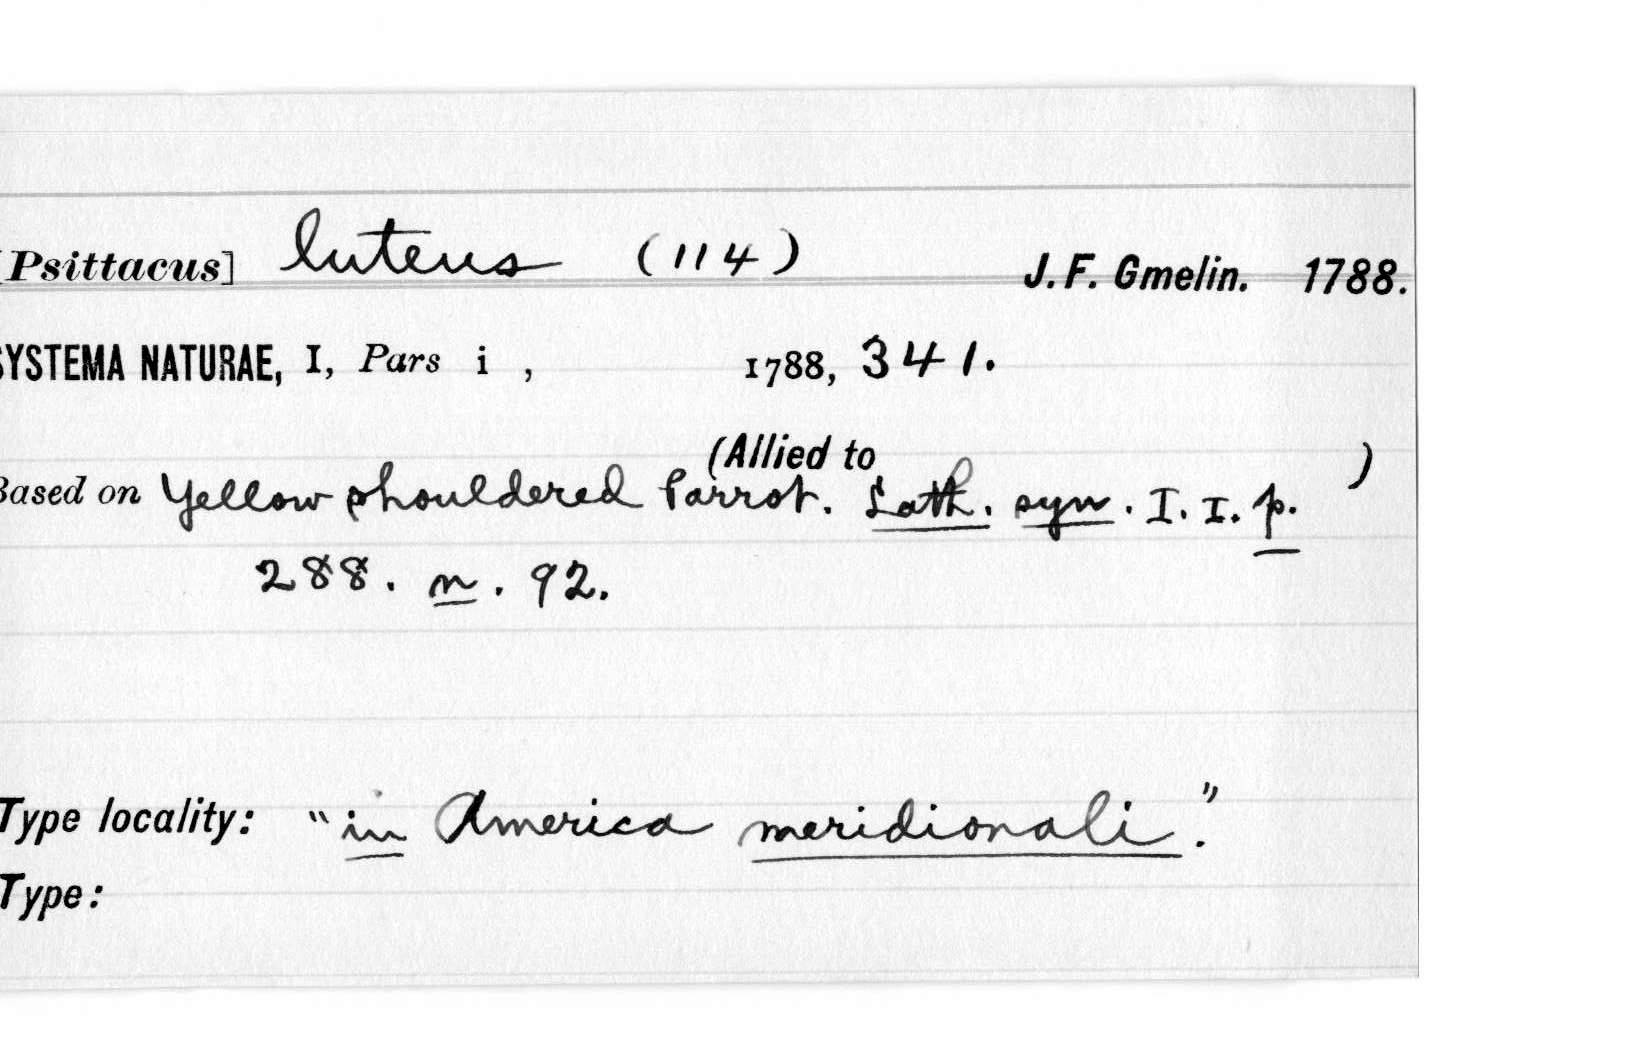 [Psittacus] luteus (114) J. F. Gmelin. 1788.
SYSTEMA NATURAE, I, Pars i , 1788, 341.
(Allied to )
Based on Yellow shouldered Parrot. Lath. syn. I. I. p.
288. n. 92.
Type locality: "in America meridionali."
Type: